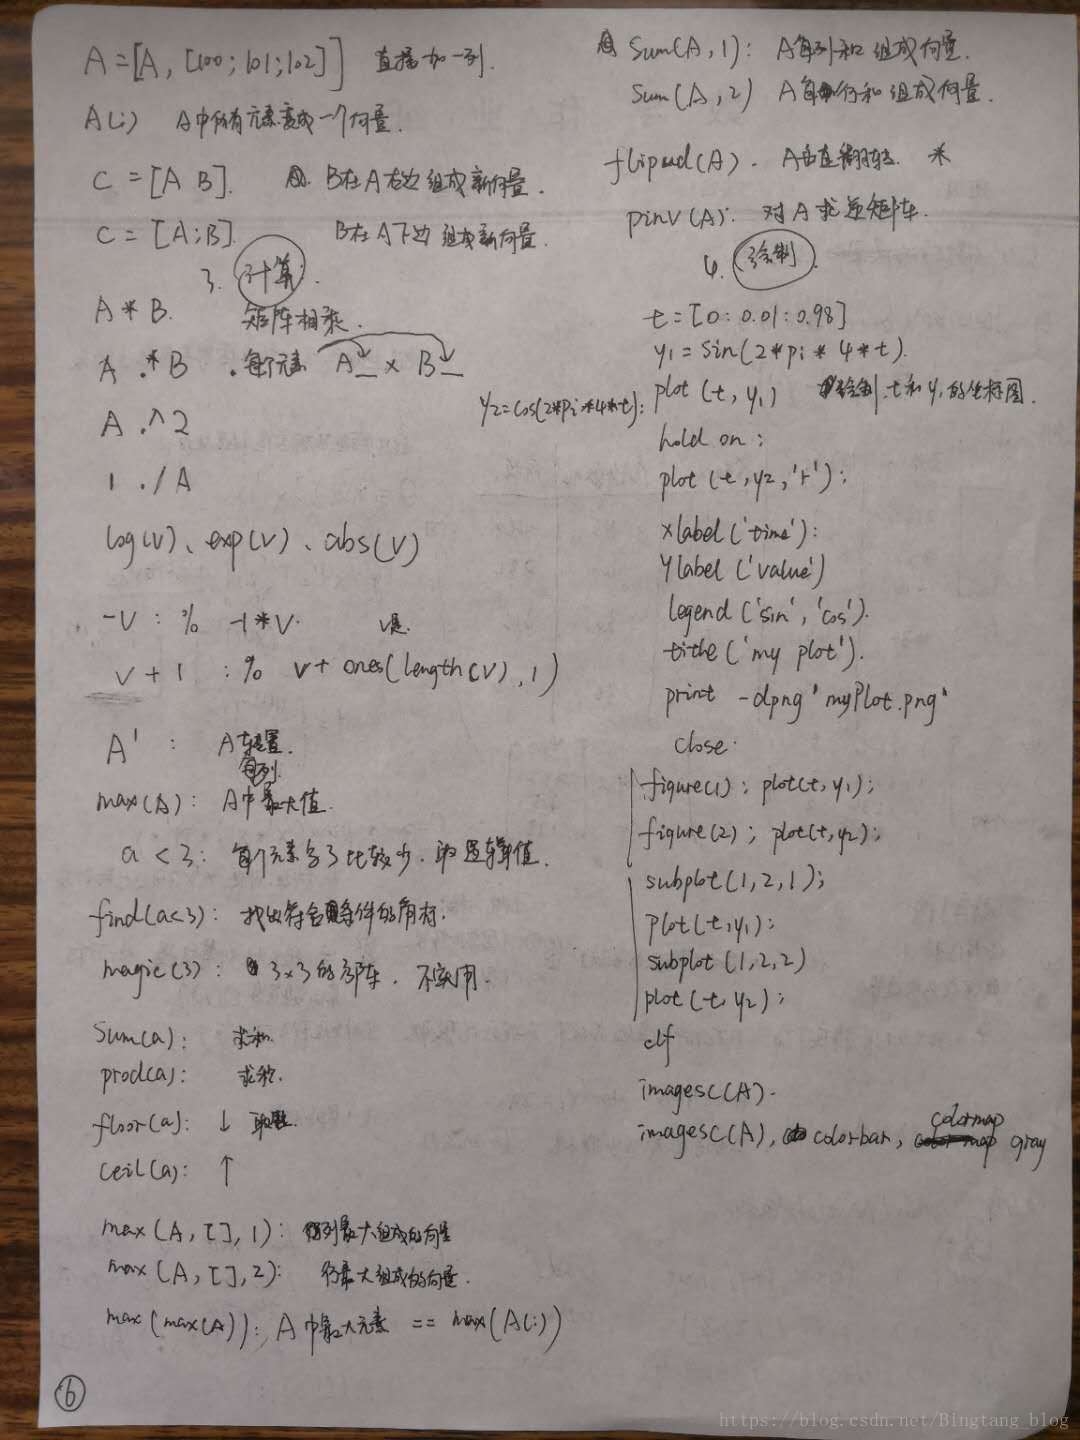 A=[A, [100;101;102]] 直接加一列.
A(:) A中所有元素变成一个向量.
C = [A B]. B在A右边组成新向量.
C = [A;B]. B在A下边组成新向量.
3. 计算.
A * B. 矩阵相乘.
A .* B . 每个元素 A_ × B_
A .^2
1 ./A
log(v)、exp(v)、abs(v)
-v : % -1*v. v是.
v + 1 : % v+ ones(length(v),1)
A' : A转置.
每列
max(A): A中最大值.
a < 3: 每个元素与3比较少. 取逻辑值.
find(a<3): 找出符合条件的角标.
magic(3): 3×3的方阵. 不实用.
sum(a): 求和.
prod(a): 求积.
floor(a): ↓ 取整.
ceil(a): ↑
max(A,[],1): 列最大组成的向量
max(A,[],2): 行最大组成的向量.
max(max(A)): A中最大元素 == max(A(:))
⑥
sum(A,1): A每列和组成向量.
sum(A,2) A每行和组成向量.
flipud(A). A垂直翻转. *
pinv(A): 对A求逆矩阵.
4. 绘制.
t=[0:0.01:0.98]
y1=sin(2*pi*4*t).
y2=cos(2*pi*4*t); plot(t,y1) 绘制t和y1的坐标图.
hold on;
plot(t,y2,'r');
xlabel('time');
ylabel('value')
legend('sin','cos').
title('my plot').
print -dpng 'myPlot.png'
close.
figure(1); plot(t,y1);
figure(2); plot(t,y2);
subplot(1,2,1);
plot(t,y1);
subplot(1,2,2)
plot(t,y2);
clf
imagesc(A).
imagesc(A), colorbar, colormap gray
https://blog.csdn.net/Bingtang_blog